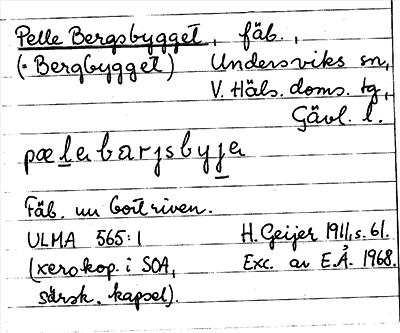 Pelle Bergsbygget, fäb.,
(·Bergbygget) Undersviks sn,
V. Häls. doms. tg,
Gävl. l.
pælabarjsbyja
Fäb. nu bortriven.
ULMA 565:1 H. Geijer 1911, s. 61.
(xerokop. i SOA, Exc. av E.Å. 1968.
särsk. kapsel).